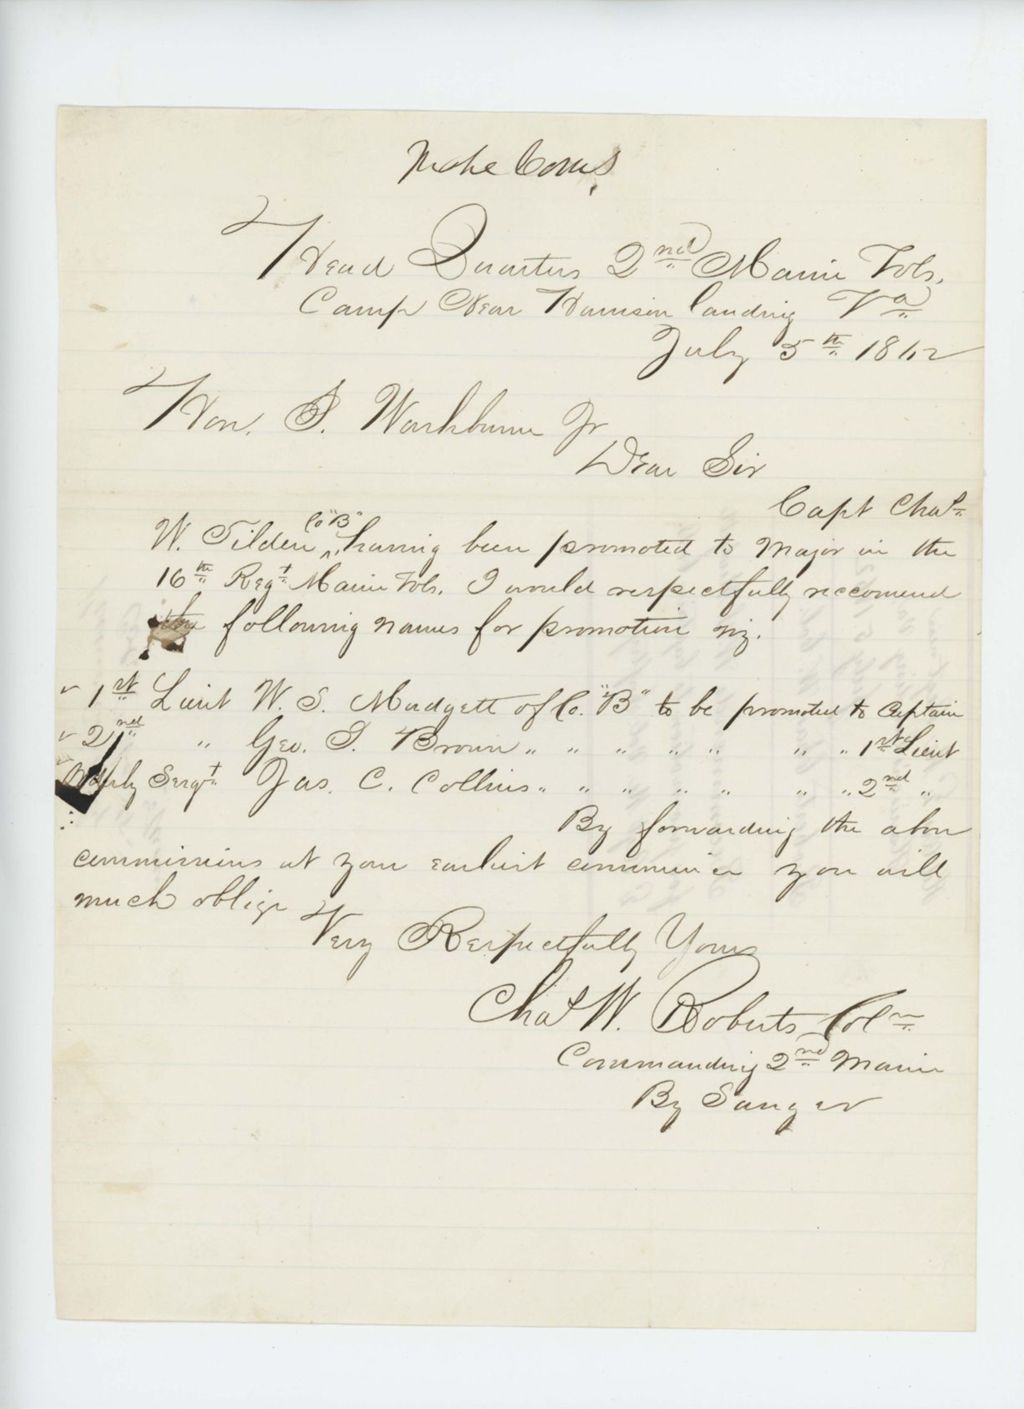 Make Coms
Head Quarters 2nd Maine Vols.
Camp Near Harrison Landing Va
July 5th 1862
Hon. I. Washburne Jr
Dear Sir
Capt Chas
W. Tilden Co "B" having been promoted to Major in the
16th Regt Maine Vols. I would respectfully reccomend
the following names for promotion viz.
1st Lieut W. S. Mudgett of Co. "B" to be promoted to Captain
2nd " Geo. D. Brown " " " " " " " 1st Lieut
Orderly Sergt Jas. C. Collins " " " " " " " 2nd "
By forwarding the above
commissions at your earliest convenience you will
much oblige
Very Respectfully Yours
Chas W. Roberts Coln
Commanding 2nd Maine
By Sanger